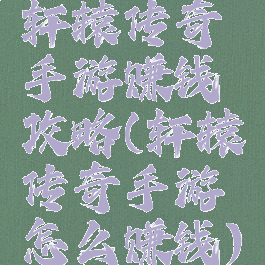 轩辕传奇
手游赚钱
攻略(轩辕
传奇手游
怎么赚钱)